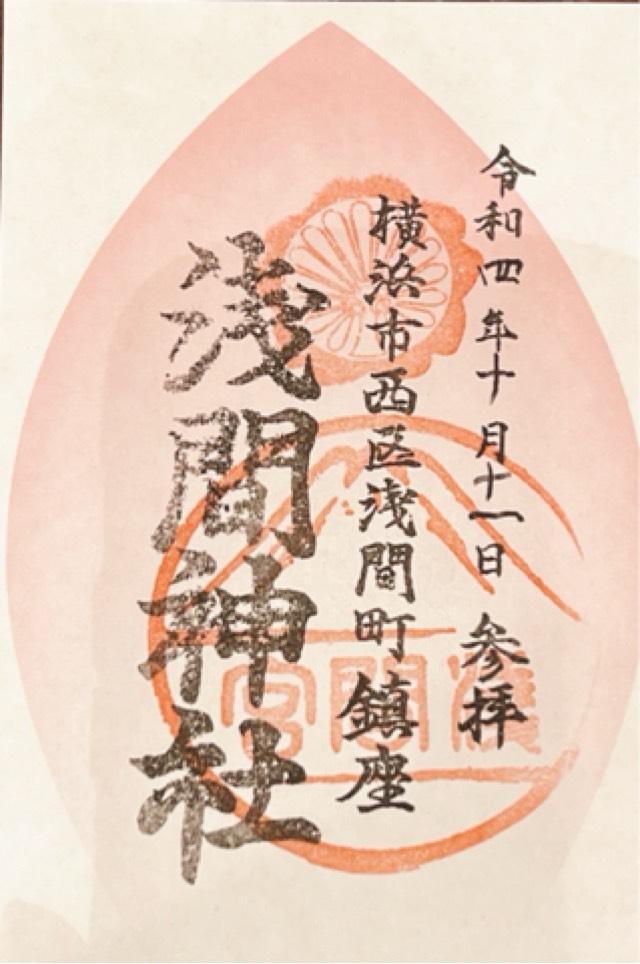 令和四年十月十一日 参拝
横浜市西区浅間町鎮座
浅間神社